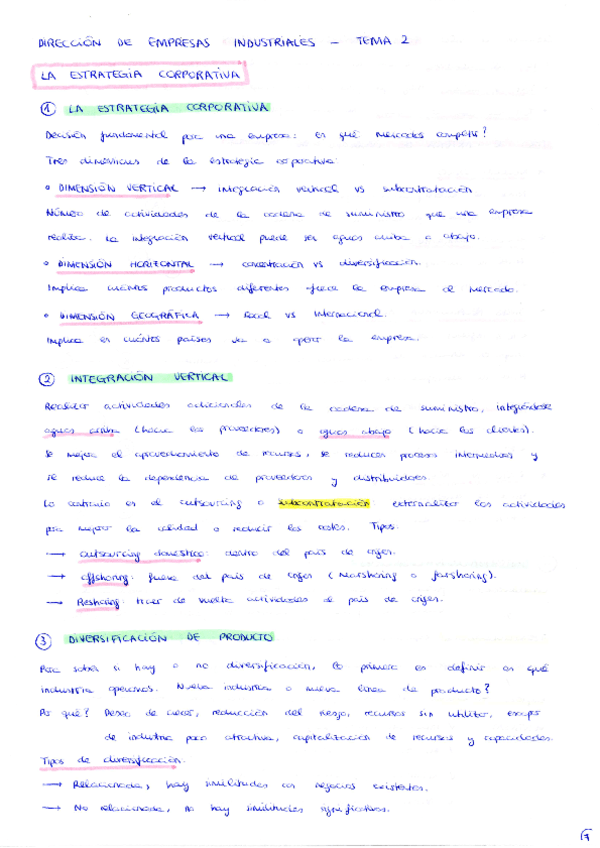 DIRECCIÓN DE EMPRESAS INDUSTRIALES - TEMA 2
LA ESTRATEGIA CORPORATIVA
1 LA ESTRATEGIA CORPORATIVA
Decisión fundamental para una empresa: en qué mercados competir?
Tres dimensiones de la estrategia corporativa:
• DIMENSIÓN VERTICAL → integración vertical vs subcontratación
Número de actividades de la cadena de suministro que una empresa
realiza. La integración vertical puede ser aguas arriba o abajo.
• DIMENSIÓN HORIZONTAL → concentración vs diversificación.
Implica cuántos productos diferentes ofrece la empresa al mercado.
• DIMENSIÓN GEOGRÁFICA → local vs internacional.
Implica en cuántos países va a operar la empresa.
2 INTEGRACIÓN VERTICAL
Realizar actividades adicionales de la cadena de suministro, integrándose
aguas arriba (hacia los proveedores) o aguas abajo (hacia los clientes).
Se mejora el aprovechamiento de recursos, se reducen procesos intermedios y
se reduce la dependencia de proveedores y distribuidores.
Lo contrario es el outsourcing o subcontratación externalizar las actividades
para mejorar la calidad o reducir los costes. Tipos:
→ Outsourcing doméstico: dentro del país de origen.
→ Offshoring: fuera del país de origen (Nearshoring o farshoring).
→ Reshoring: traer de vuelta actividades al país de origen.
3 DIVERSIFICACIÓN DE PRODUCTO
Para saber si hay o no diversificación, lo primero es definir en qué
industria operamos. Nueva industria o nueva línea de producto?
Por qué? Deseo de crecer, reducción del riesgo, recursos sin utilizar, escapar
de industria poco atractiva, capitalización de recursos y capacidades.
Tipos de diversificación:
→ Relacionada, hay similitudes con negocios existentes.
→ No relacionada, no hay similitudes significativas.